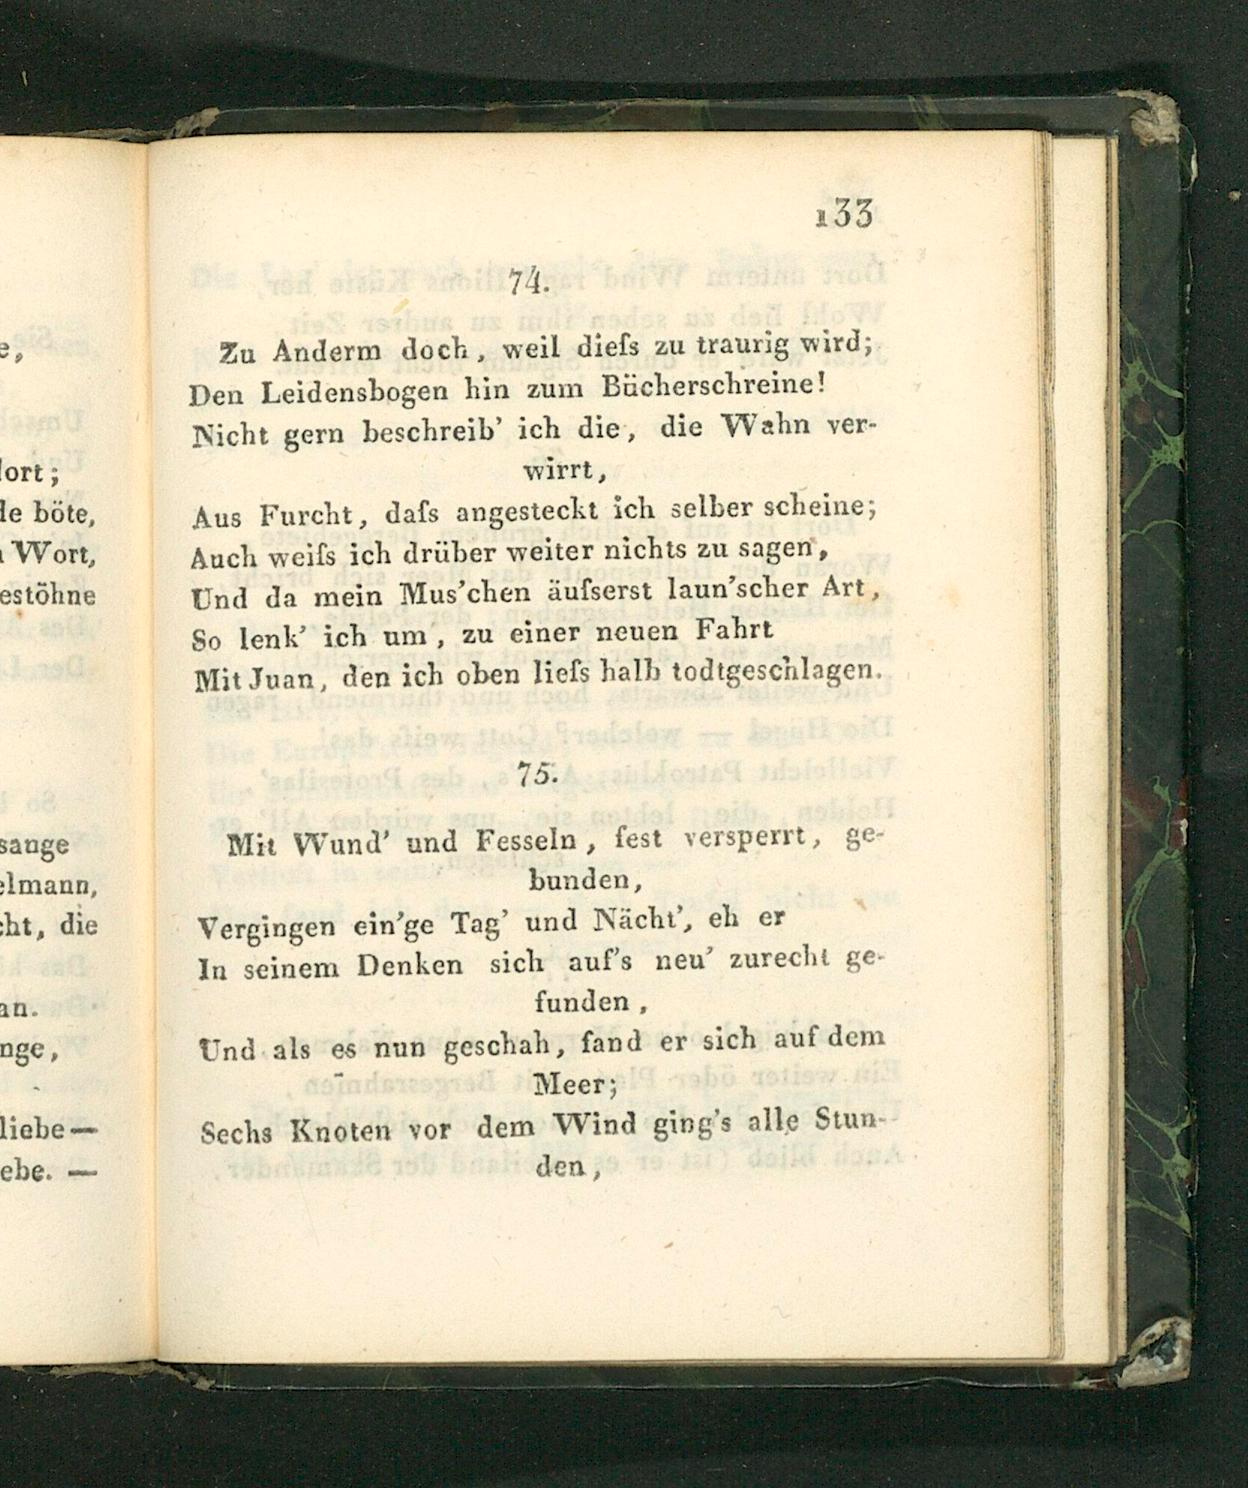 133
74.
Zu Anderm doch, weil dieſs zu traurig wird;
Den Leidensbogen hin zum Bücherschreine!
Nicht gern beschreib’ ich die, die Wahn ver-
wirrt,
Aus Furcht, daſs angesteckt ich selber scheine;
Auch weiſs ich drüber weiter nichts zu sagen,
Und da mein Mus’chen äuſserst laun’scher Art,
So lenk’ ich um, zu einer neuen Fahrt
Mit Juan, den ich oben lieſs halb todtgeschlagen.
75.
Mit Wund’ und Fesseln, fest versperrt, ge-
bunden,
Vergingen ein’ge Tag’ und Nächt’, eh er
In seinem Denken sich auf’s neu’ zurecht ge-
funden,
Und als es nun geschah, fand er sich auf dem
Meer;
Sechs Knoten vor dem Wind ging’s alle Stun-
den,